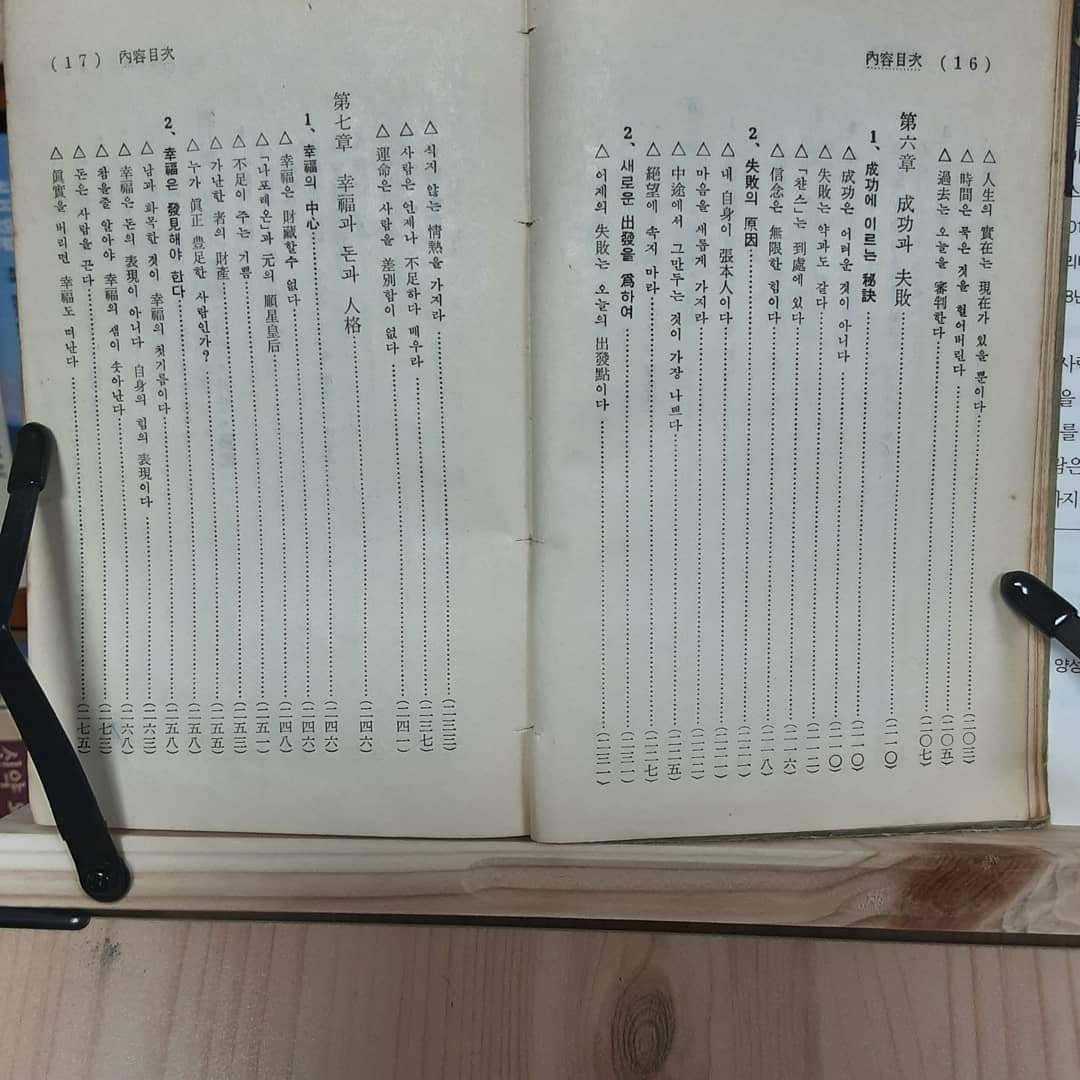 內容目次 (16)
△人生의 實在는 現在가 있을 뿐이다 (二〇三)
△時間은 묵은 것을 헐어버린다 (二〇五)
△過去는 오늘을 審判한다 (二〇七)
第六章 成功과 失敗 (二一〇)
1、成功에 이르는 秘訣 (二一〇)
△成功은 어려운 것이 아니다 (二一〇)
△失敗는 약과도 같다 (二一二)
△「챤스」는 到處에 있다 (二一六)
△信念은 無限한 힘이다 (二一八)
2、失敗의 原因 (二二一)
△네 自身이 張本人이다 (二二一)
△마음을 새롭게 가지라 (二二三)
△中途에서 그만두는 것이 가장 나쁘다 (二二五)
△絕望에 속지 마라 (二二七)
2、새로운 出發을 爲하여 (二三一)
△어제의 失敗는 오늘의 出發點이다 (二三一)
(17) 內容目次
△식지 않는 情熱을 가지라 (二三三)
△사람은 언제나 不足하다 배우라 (二三七)
△運命은 사람을 差別함이 없다 (二四一)
第七章 幸福과 돈과 人格 (二四六)
1、幸福의 中心 (二四六)
△幸福은 財藏할수 없다 (二四六)
△「나포레온」과 元의 順星皇后 (二四八)
△不足이 주는 기쁨 (二五一)
△가난한 者의 財產 (二五三)
△누가 眞正 豊足한 사람인가? (二五五)
2、幸福은 發見해야 한다 (二五八)
△남과 화목한 것이 幸福의 첫기름이다 (二五八)
△幸福은 돈의 表現이 아니다 自身의 힘의 表現이다 (二六三)
△참을줄 알아야 幸福의 샘이 솟아난다 (二六八)
△돈은 사람을 끈다 (二七三)
△眞實을 버리면 幸福도 떠난다 (二七五)
시약
양성